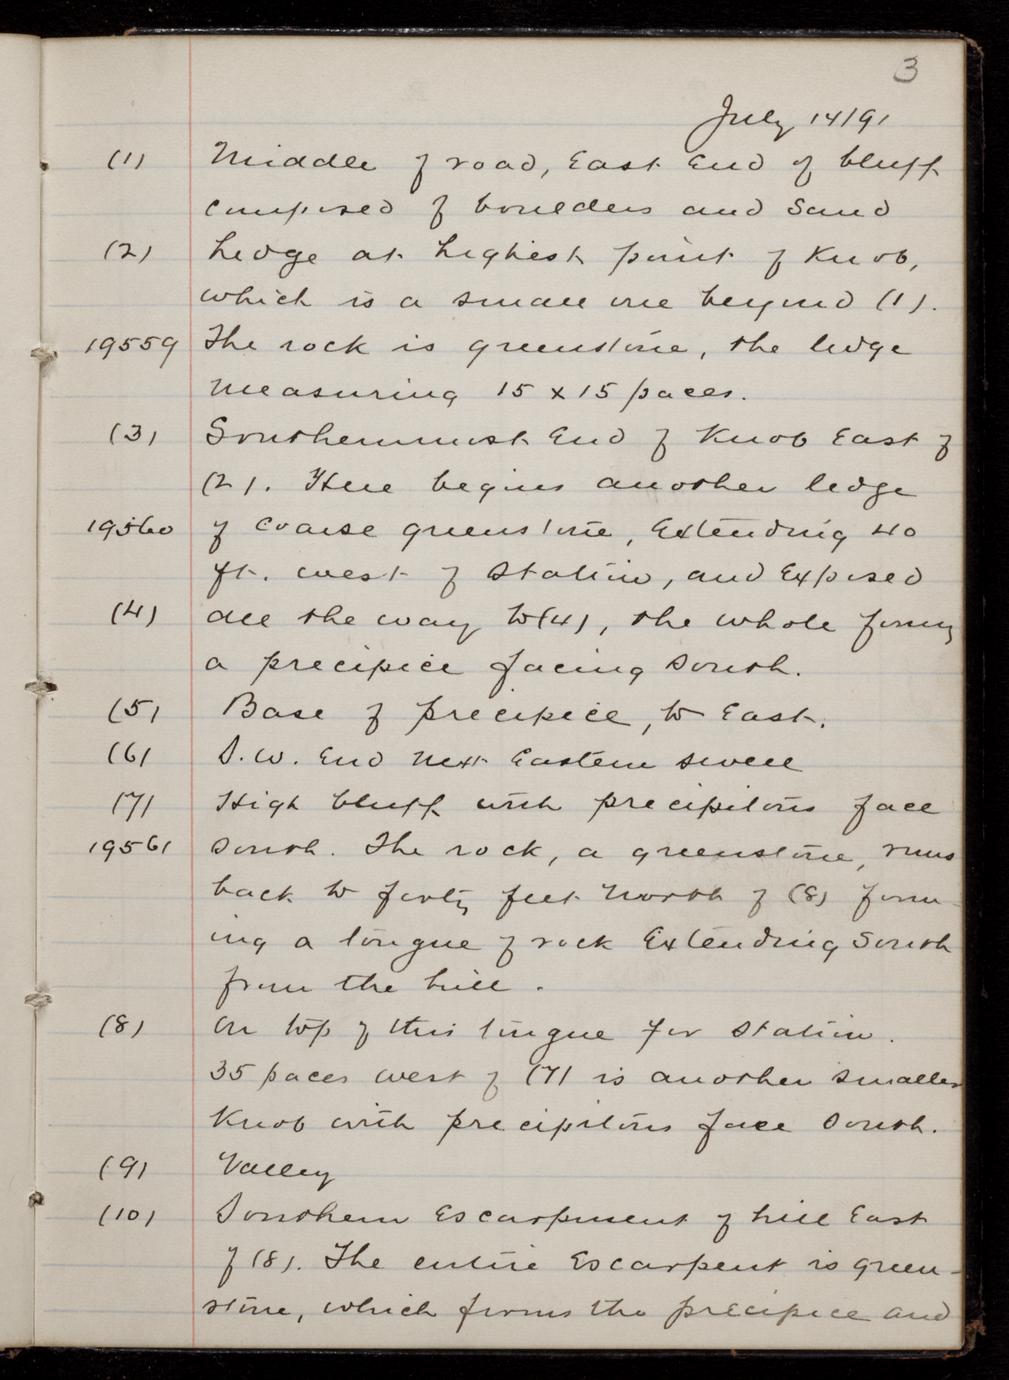 3
July 14/91
(1) Middle of road, East End of bluff
composed of boulders and sand
(2) Ledge at highest point of Knob,
which is a small one beyond (1).
19559 The rock is greenstone, the ledge
measuring 15 x 15 paces.
(3) Southernmost End of Knob East of
(2). Here begins another ledge
19560 of coarse greenstone, Extending 40
ft. west of station, and Exposed
(4) all the way to (4), the whole forming
a precipice facing South.
(5) Base of precipice, to East.
(6) S.W. End next Eastern swell
(7) High bluff with precipitous face
19561 South. The rock, a greenstone, runs
back to forty feet North of (8) form-
ing a tongue of rock Extending South
from the hill.
(8) On top of this tongue for station.
35 paces west of (7) is another smaller
Knob with precipitous face South.
(9) Valley
(10) Southern Escarpment of hill East
of (8). The entire Escarpent is green-
stone, which forms the precipice and